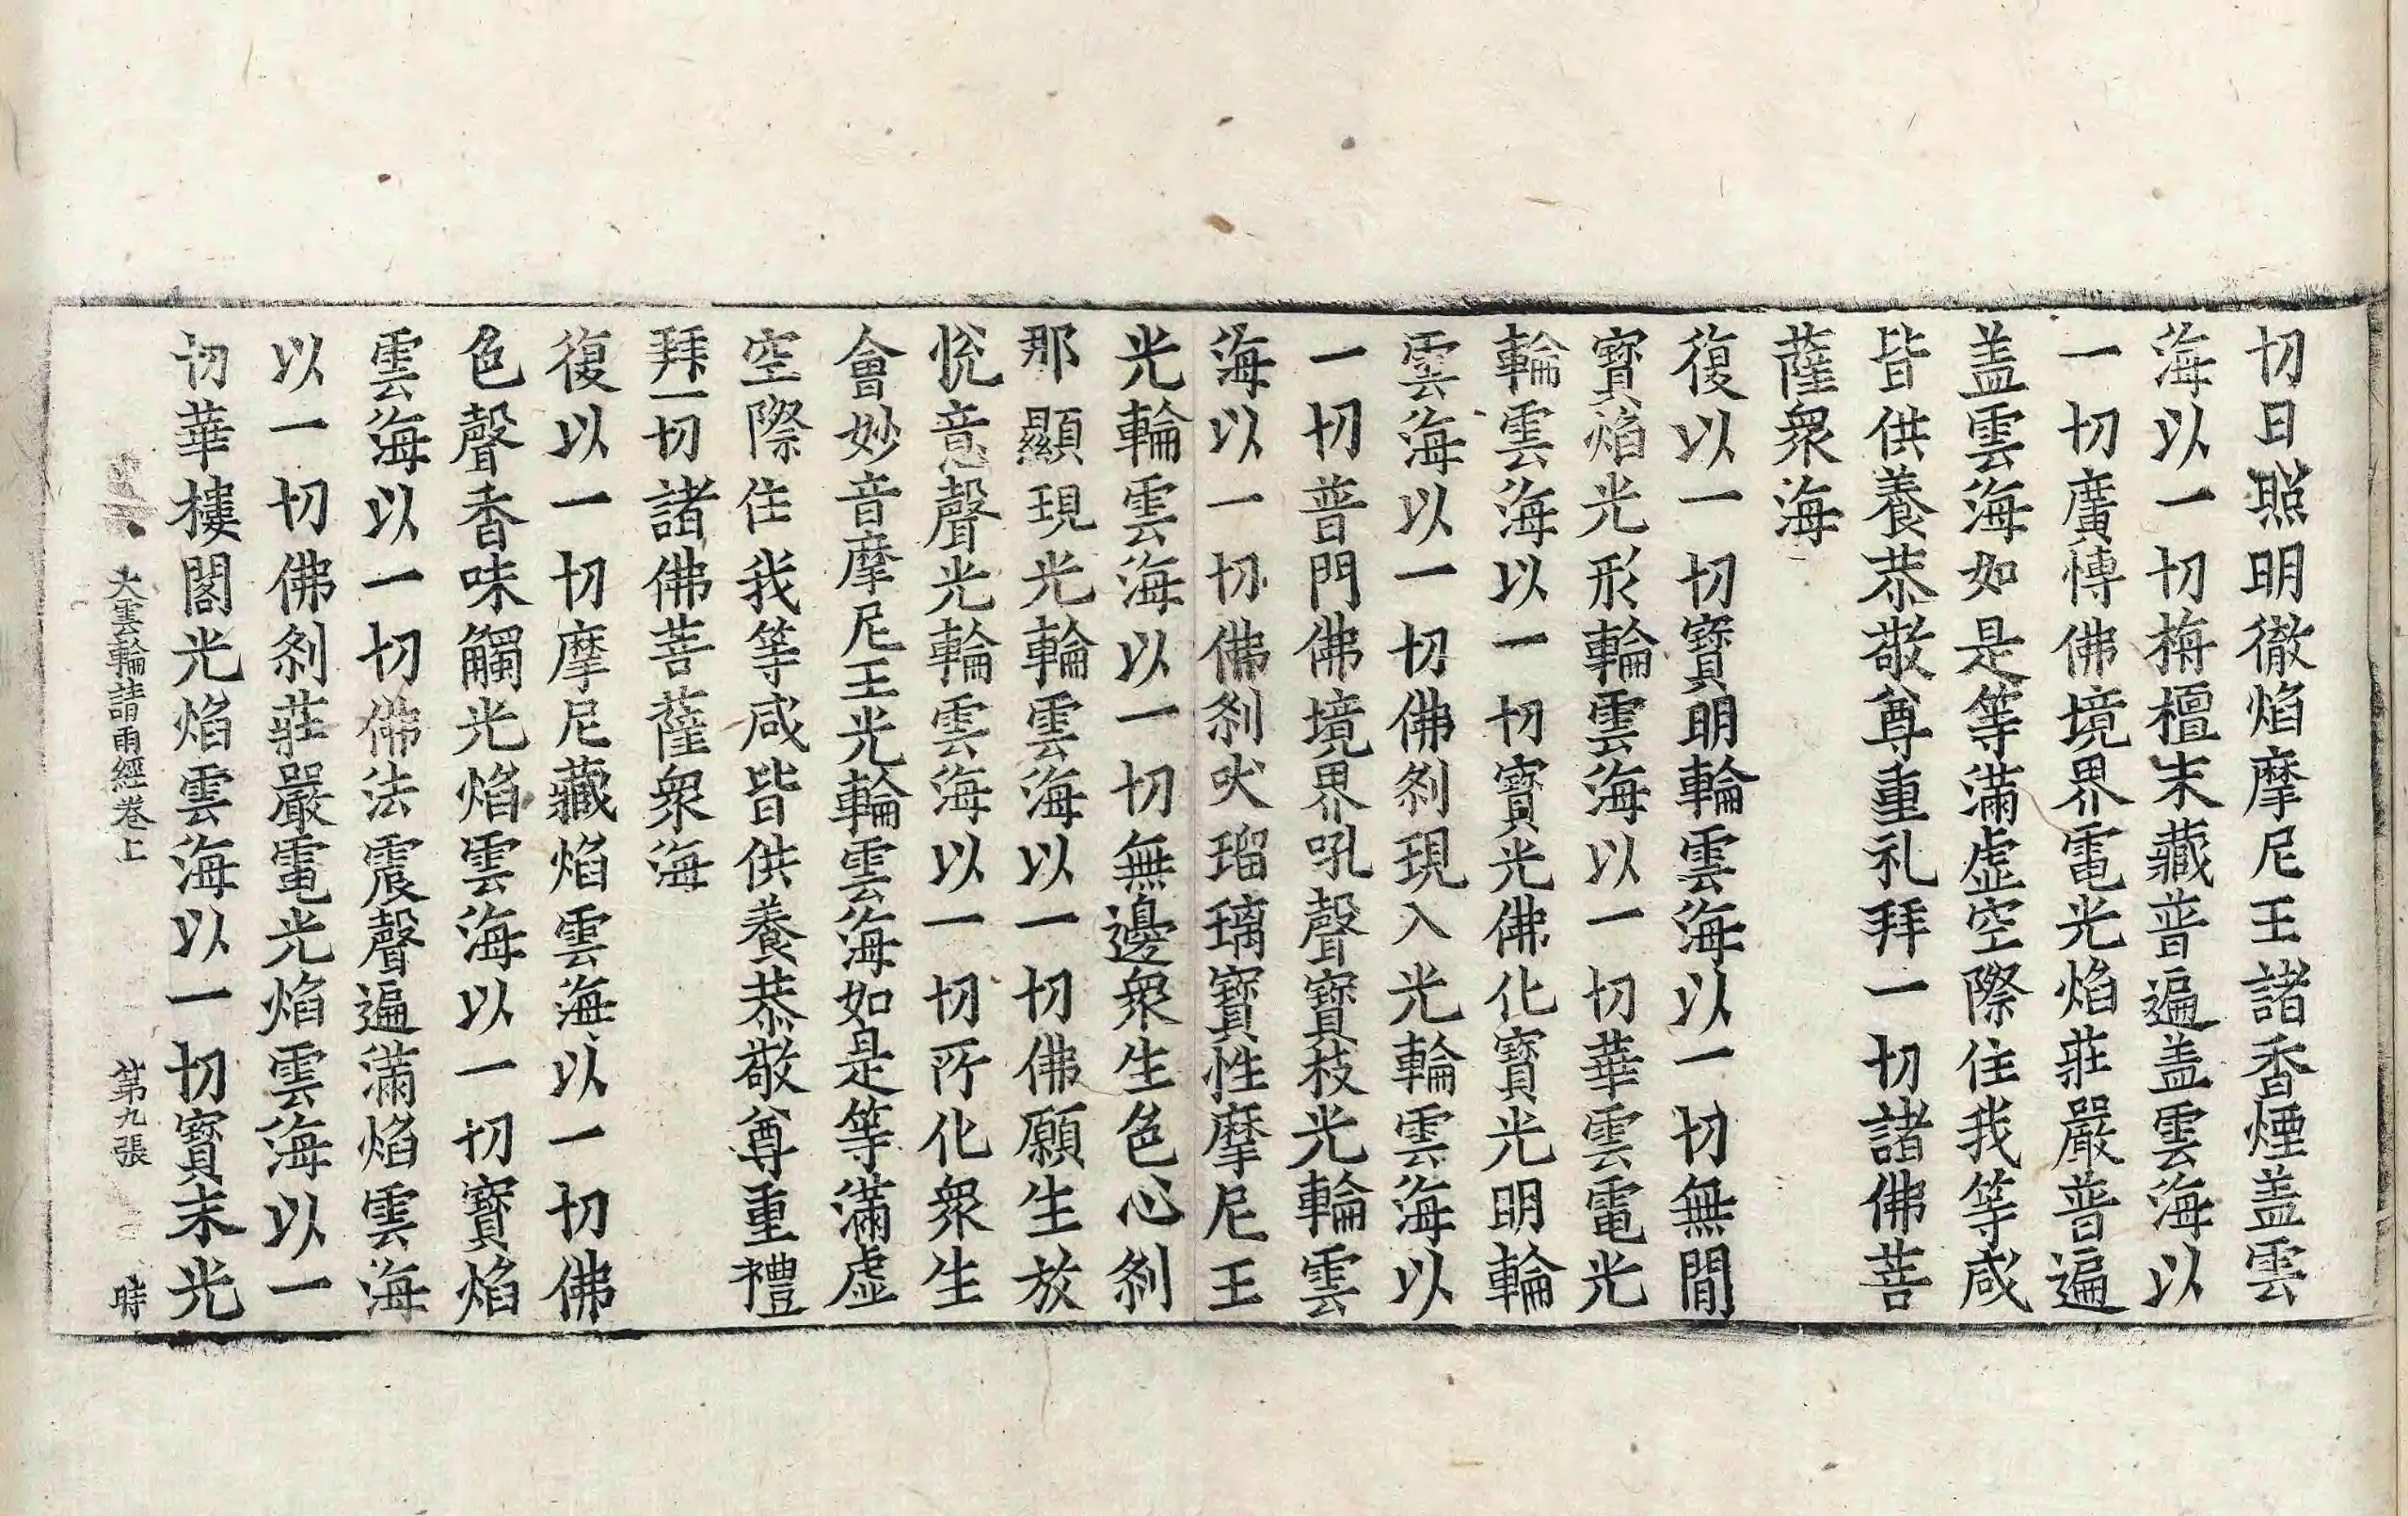 切日照明徹焰摩尼王諸香煙盖雲
海以一切栴檀末藏普遍盖雲海以
一切廣博佛境界電光焰莊嚴普遍
盖雲海如是等滿虛空際住我等咸
皆供養恭敬尊重礼拜一切諸佛菩
薩衆海
復以一切寶明輪雲海以一切無間
寶焰光形輪雲海以一切華雲電光
輪雲海以一切寶光佛化寶光明輪
雲海以一切佛刹現入光輪雲海以
一切普門佛境界吼聲寶枝光輪雲
海以一切佛刹吠瑠璃寶性摩尼王
光輪雲海以一切無邊衆生色心刹
那顯現光輪雲海以一切佛願生放
悅意聲光輪雲海以一切所化衆生
會妙音摩尼王光輪雲海如是等滿虛
空際住我等咸皆供養恭敬尊重禮
拜一切諸佛菩薩衆海
復以一切摩尼藏焰雲海以一切佛
色聲香味觸光焰雲海以一切寶焰
雲海以一切佛法震聲遍滿焰雲海
以一切佛刹莊嚴電光焰雲海以一
切華樓閣光焰雲海以一切寶末光
大雲輪請雨經卷上 第九張 時